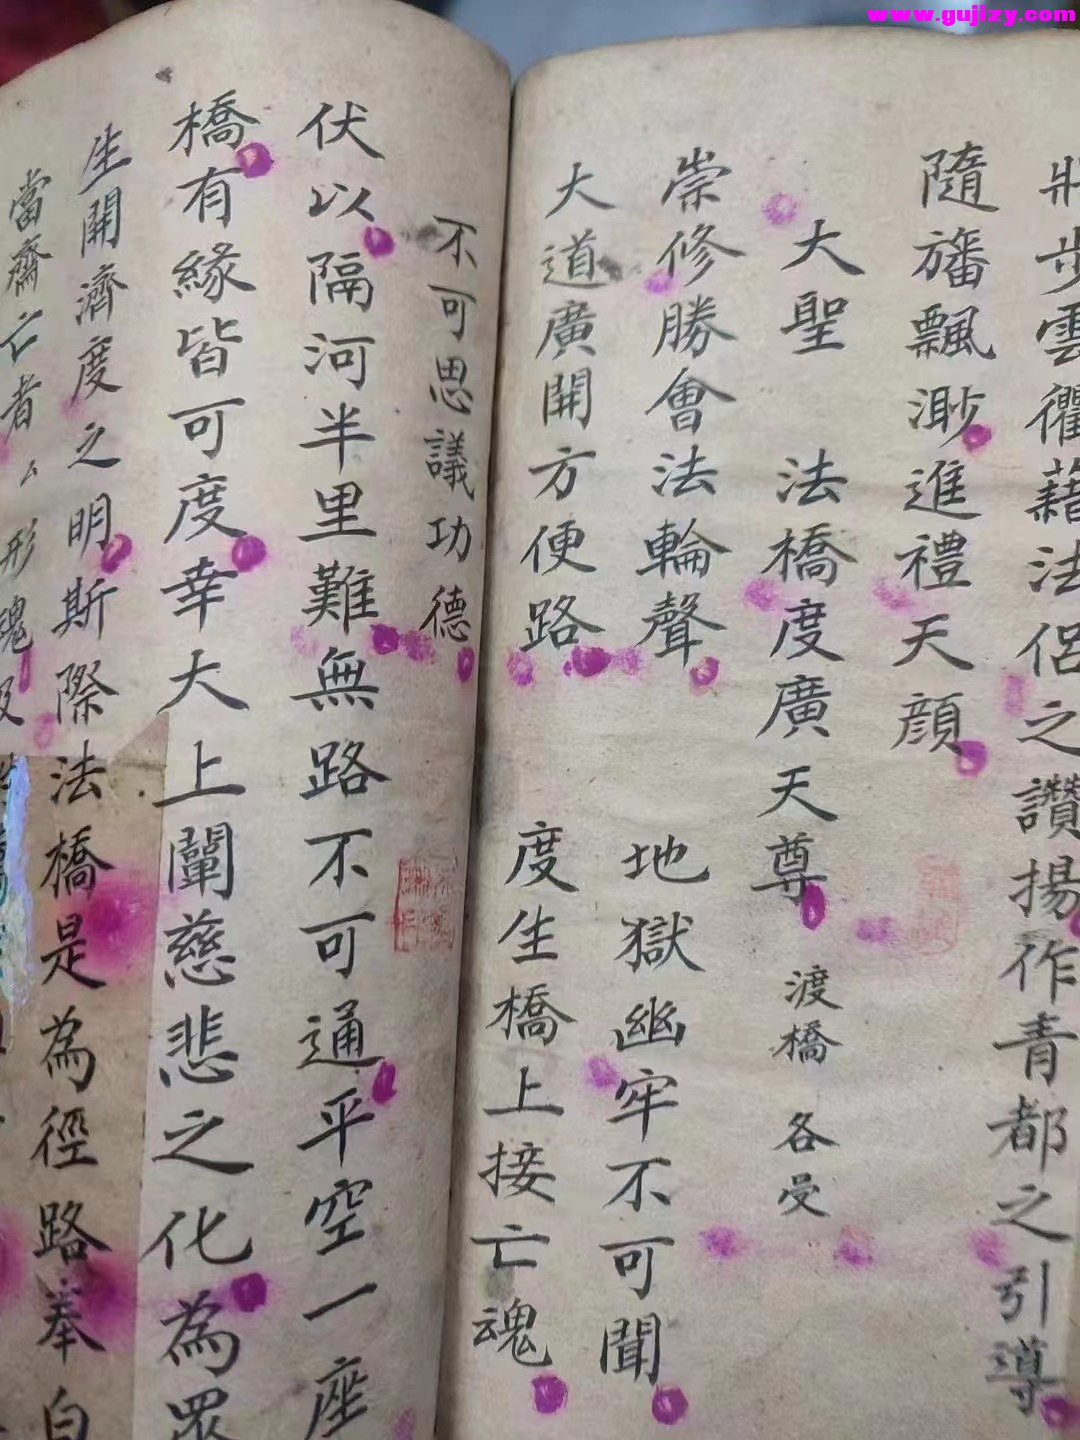 www.gujlzy.com
步雲衢藉法侶之讚揚作青都之引導
隨旛飄渺進禮天顏
大聖 法橋度廣天尊 渡橋 各受
崇修勝會法輪聲 地獄幽牢不可聞
大道廣開方便路 度生橋上接亡魂
不可思議功德
伏以隔河半里難無路不可通平空一座
橋有緣皆可度幸大上闡慈悲之化為眾
生開濟度之明斯際法橋是為徑路奉白
當齋亡者 形魂